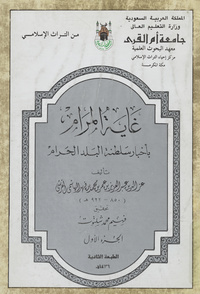 المملكة العربية السعودية
وزارة التعليم العالى
جامعة أم القرى
معهد البحوث العلمية
مركز إحياء التراث الإسلامي
مكة المكرمة
من التراث الإسلامي
غاية المرام
بأخبار سلطنة البلد الحرام
تأليف
عز الدين عبد العزيز بن عمر بن محمد بن فهد الهاشمي القرشي
تحقيق
فهيم محمد شلتوت
الجزء الأول
الطبعة الثانية